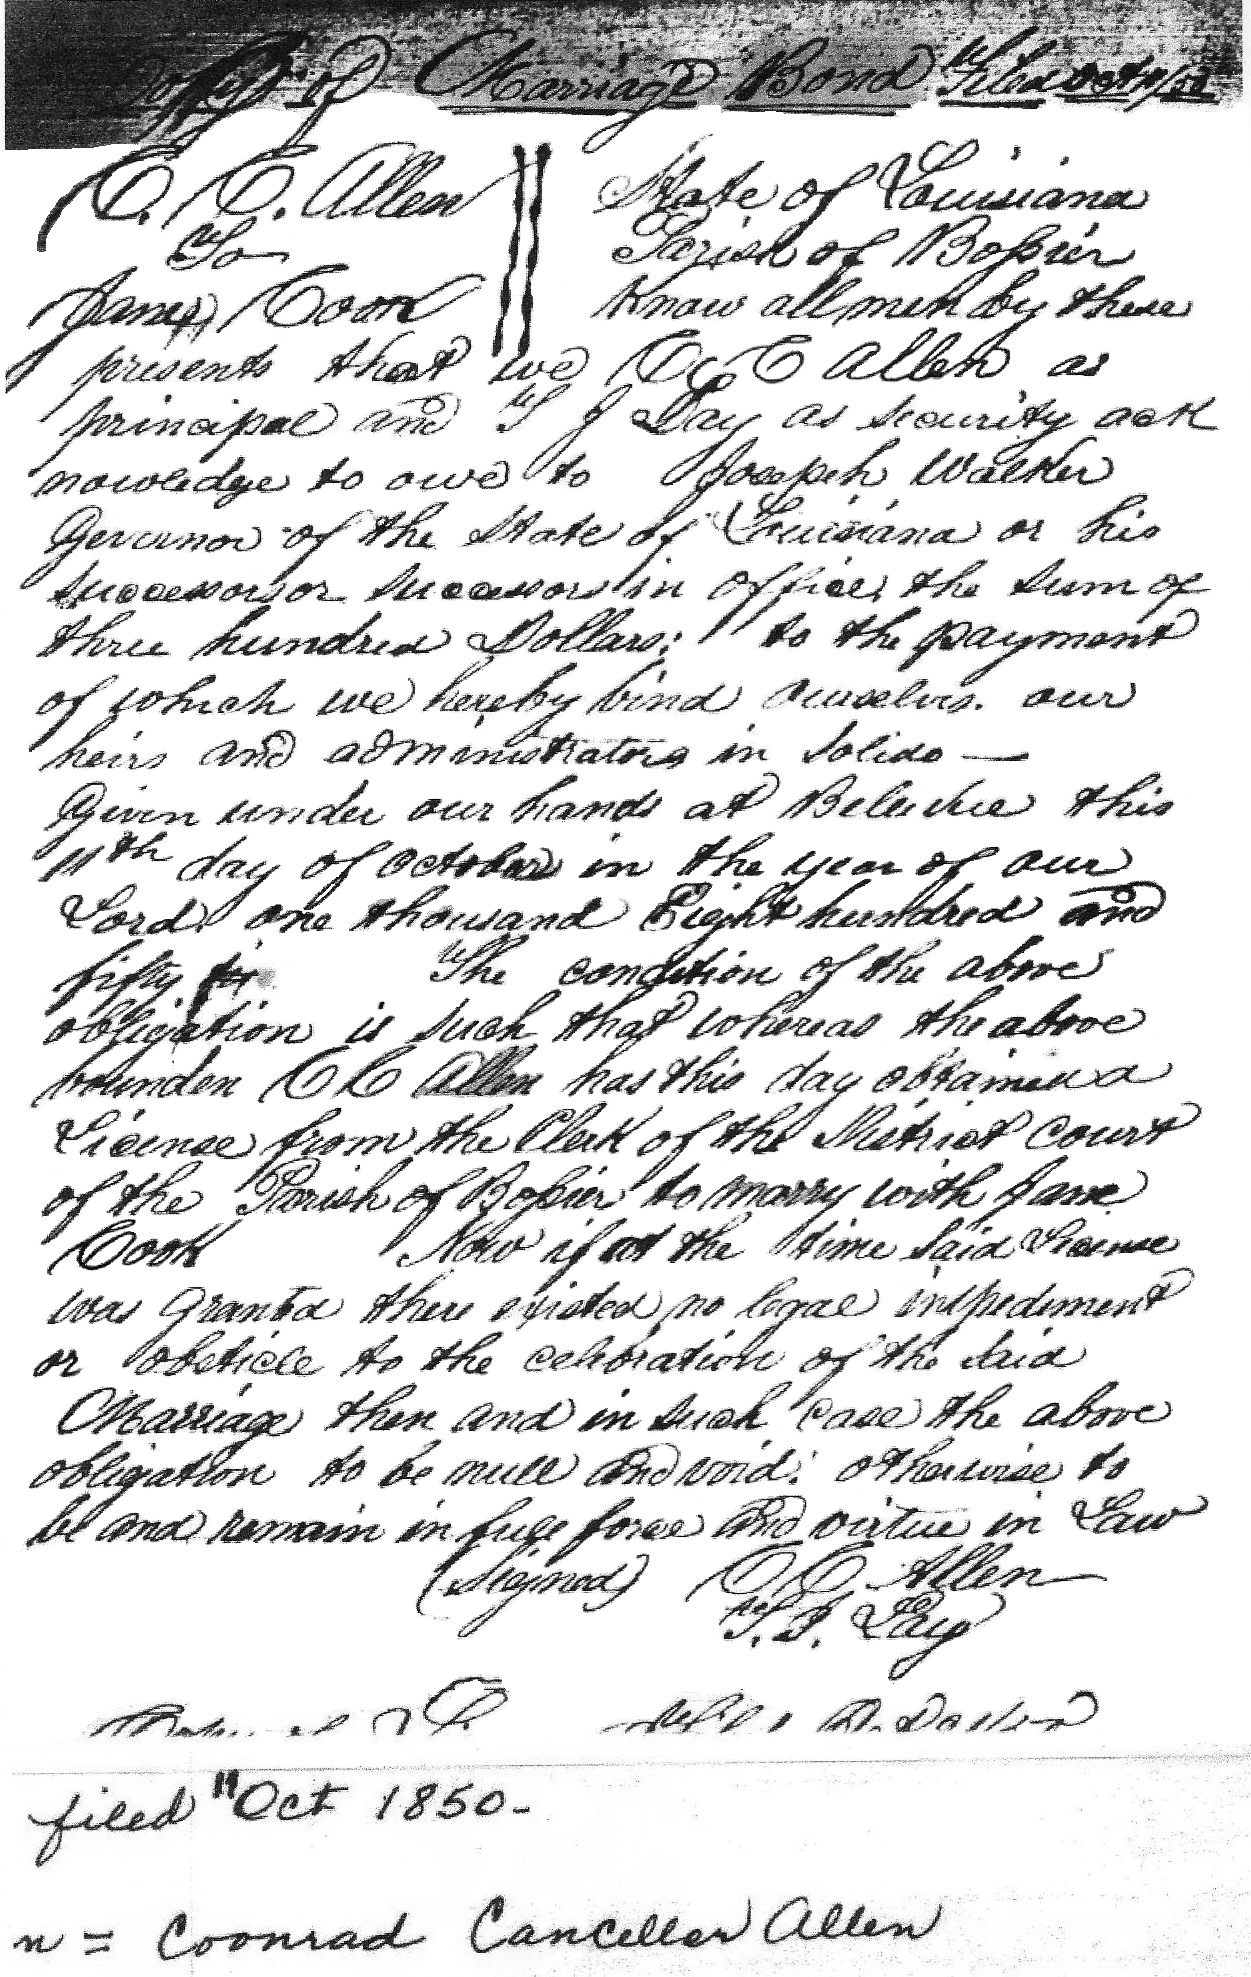 Copy of Marriage Bond Filed Oct 11/50
C. C. Allen
To
Jane Cook
State of Louisiana
Parish of Boſsier
Know all men by these
presents that we C C Allen as
principal and T J Day as security ack
nowledge to owe to Joseph Walker
Governor of the State of Louisiana or his
successor or successors in office, the sum of
three hundred Dollars; to the payment
of which we hereby bind ourselves. our
heirs and administrators in solido —
Given under our hands at Belevue this
11th day of October in the year of our
Lord one thousand Eight hundred and
fifty The condition of the above
obligation is such that whereas the above
bounden C C Allen has this day obtained a
License from the Clerk of the District court
of the Parish of Boſsier to marry with Jane
Cook Now if at the time said License
was granted there existed no legal impediment
or obsticle to the celebration of the said
Marriage then and in such case the above
obligation to be null and void; otherwise to
be and remain in full force and virtue in Law
(Signed) C C Allen
T. J. Day
filed 11 Oct 1850-
n = Coonrad Canceller Allen